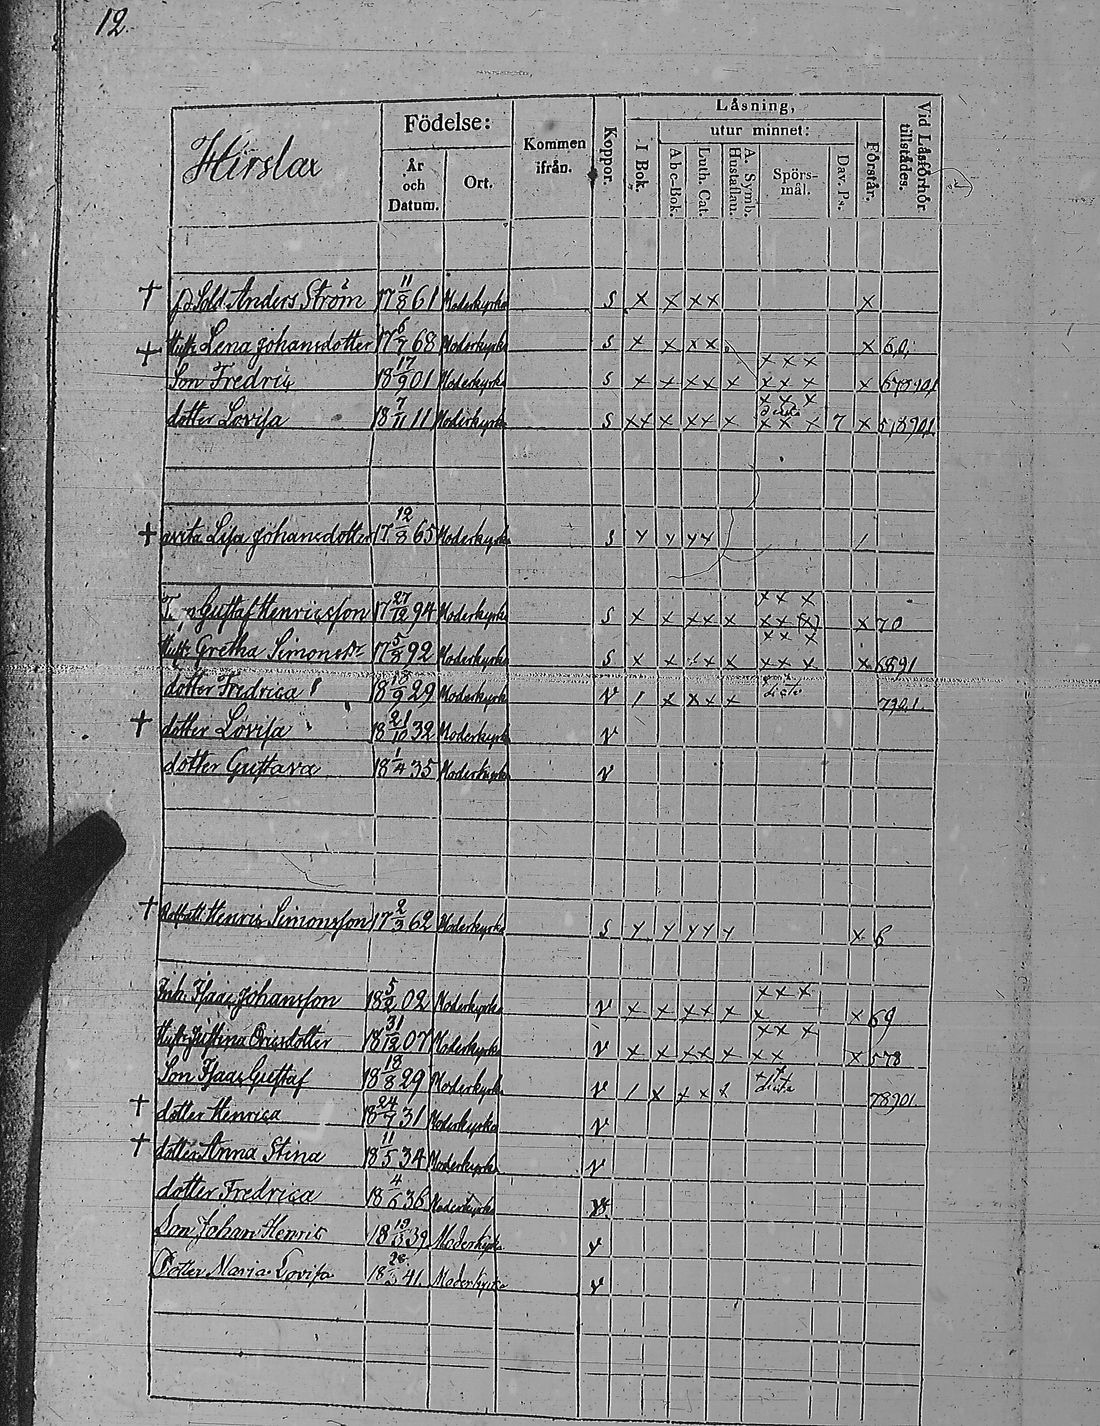 12.
Hirslax
Födelse:
År och Datum.
Ort.
Kommen ifrån.
Koppor.
Läsning,
I Bok.
utur minnet:
Abc-Bok.
Luth. Cat.
A. Symb. Hustaflan.
Spörsmål.
Dav. Ps.
Förstår.
Vid Läsförhör tillstädes.
† fd Sold Anders Ström 17 11/8 61 Moderkyrka S x x xx x
† Hust: Lena Johansdotter 17 6/7 68 Moderkyrka S x x xx x 6,0,
Son Fredric 18 17/9 01 Moderkyrk S x x xx x xxx xxx x
dotter Lovisa 18 7/11 11 Moderkyrka S xx x xx x xxx xxx 7 x
† Lisa Johansdotter 17 12/8 65 Moderkyrka S
Gustaf Henricsson 17 27/12 94 Moderkyrka S x x xx x xxx x 70
Hust: Gretha Simonsdr 17 5/8 92 Moderkyrka S x x xx x xxx xxx x 6891
dotter Fredrica 18 18/9 29 Moderkyrka V / x xx x 7901
† dotter Lovisa 18 21/10 32 Moderkyrk V
dotter Gustava 18 1/4 35 Moderkyrka V
† Henric Simonsson 17 2/3 62 Moderkyrka S x 6
Isaac Johansson 18 5/2 02 Moderkyrka V x x xx x xxx x x 69
Hust: Justina Ericsdotter 18 31/12 07 Moderkyrka V x x xx x xxx xx x 578
Son Isaac Gustaf 18 18/8 29 Moderkyrka V / x x x x 78901
† dotter Henrica 18 24/9 31 Moderkyrka V
† dotter Anna Stina 18 11/5 34 Moderkyrka V
dotter Fredrica 18 4/6 36 Moderkyrka V
Son Johan Henric 18 39 Moderkyrka v
Dotter Maria Lovisa 18 41 Moderkyrka v